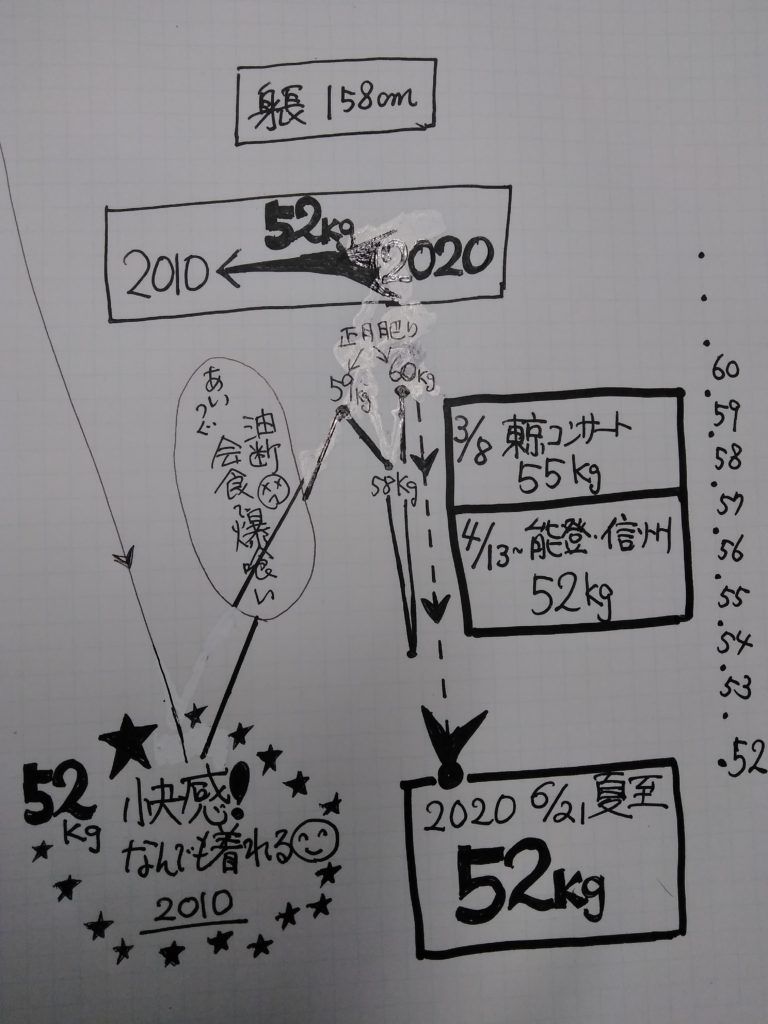 身長 158cm
52kg
2010 2020
正月肥り
59kg 60kg
58kg
あいつぐ
会食で
油断
爆喰い
3/8 東京コンサート
55kg
4/13~能登・信州
52kg
60
59
58
57
56
55
54
53
52
52kg
快感!
なんでも着れる
2010
2020 6/21 夏至
52kg